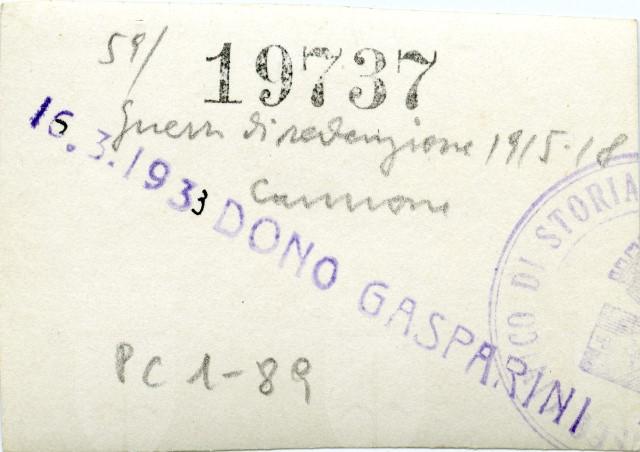 59/
19737
Guerra di redenzione 1915-18
Cannone
16.3.1933 DONO GASPARINI
CO DI STORIA
PC 1-89